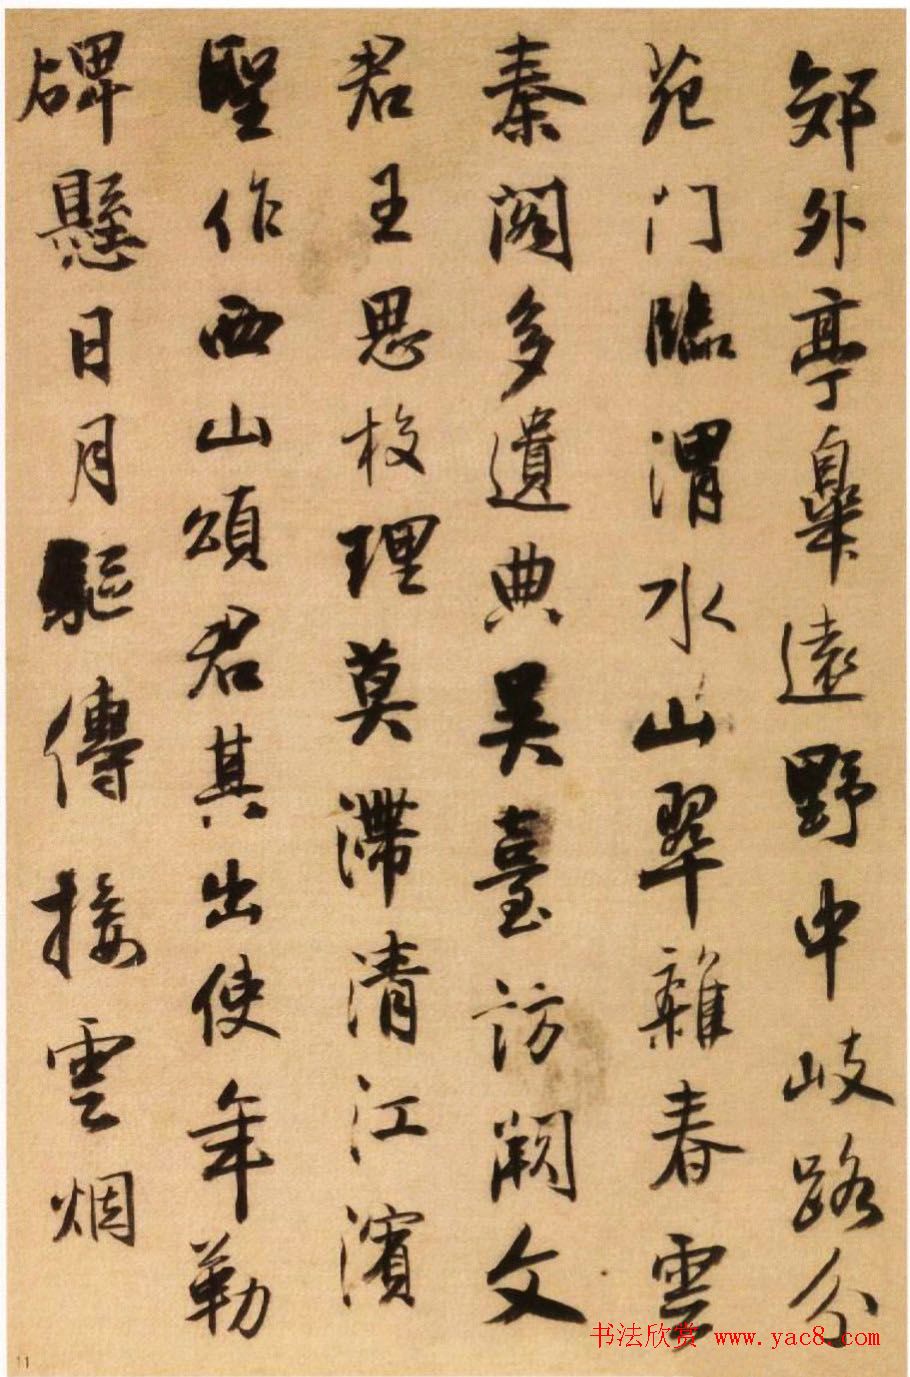 郊外亭皋遠野中岐路分
苑门臨渭水山翠雜春雲
秦阁多遺典吴臺訪阙文
君王思校理莫滯清江濱
聖作西山頌君其出使年勒
碑懸日月驅傳接雲烟
书法欣赏 www.yac8.com
11